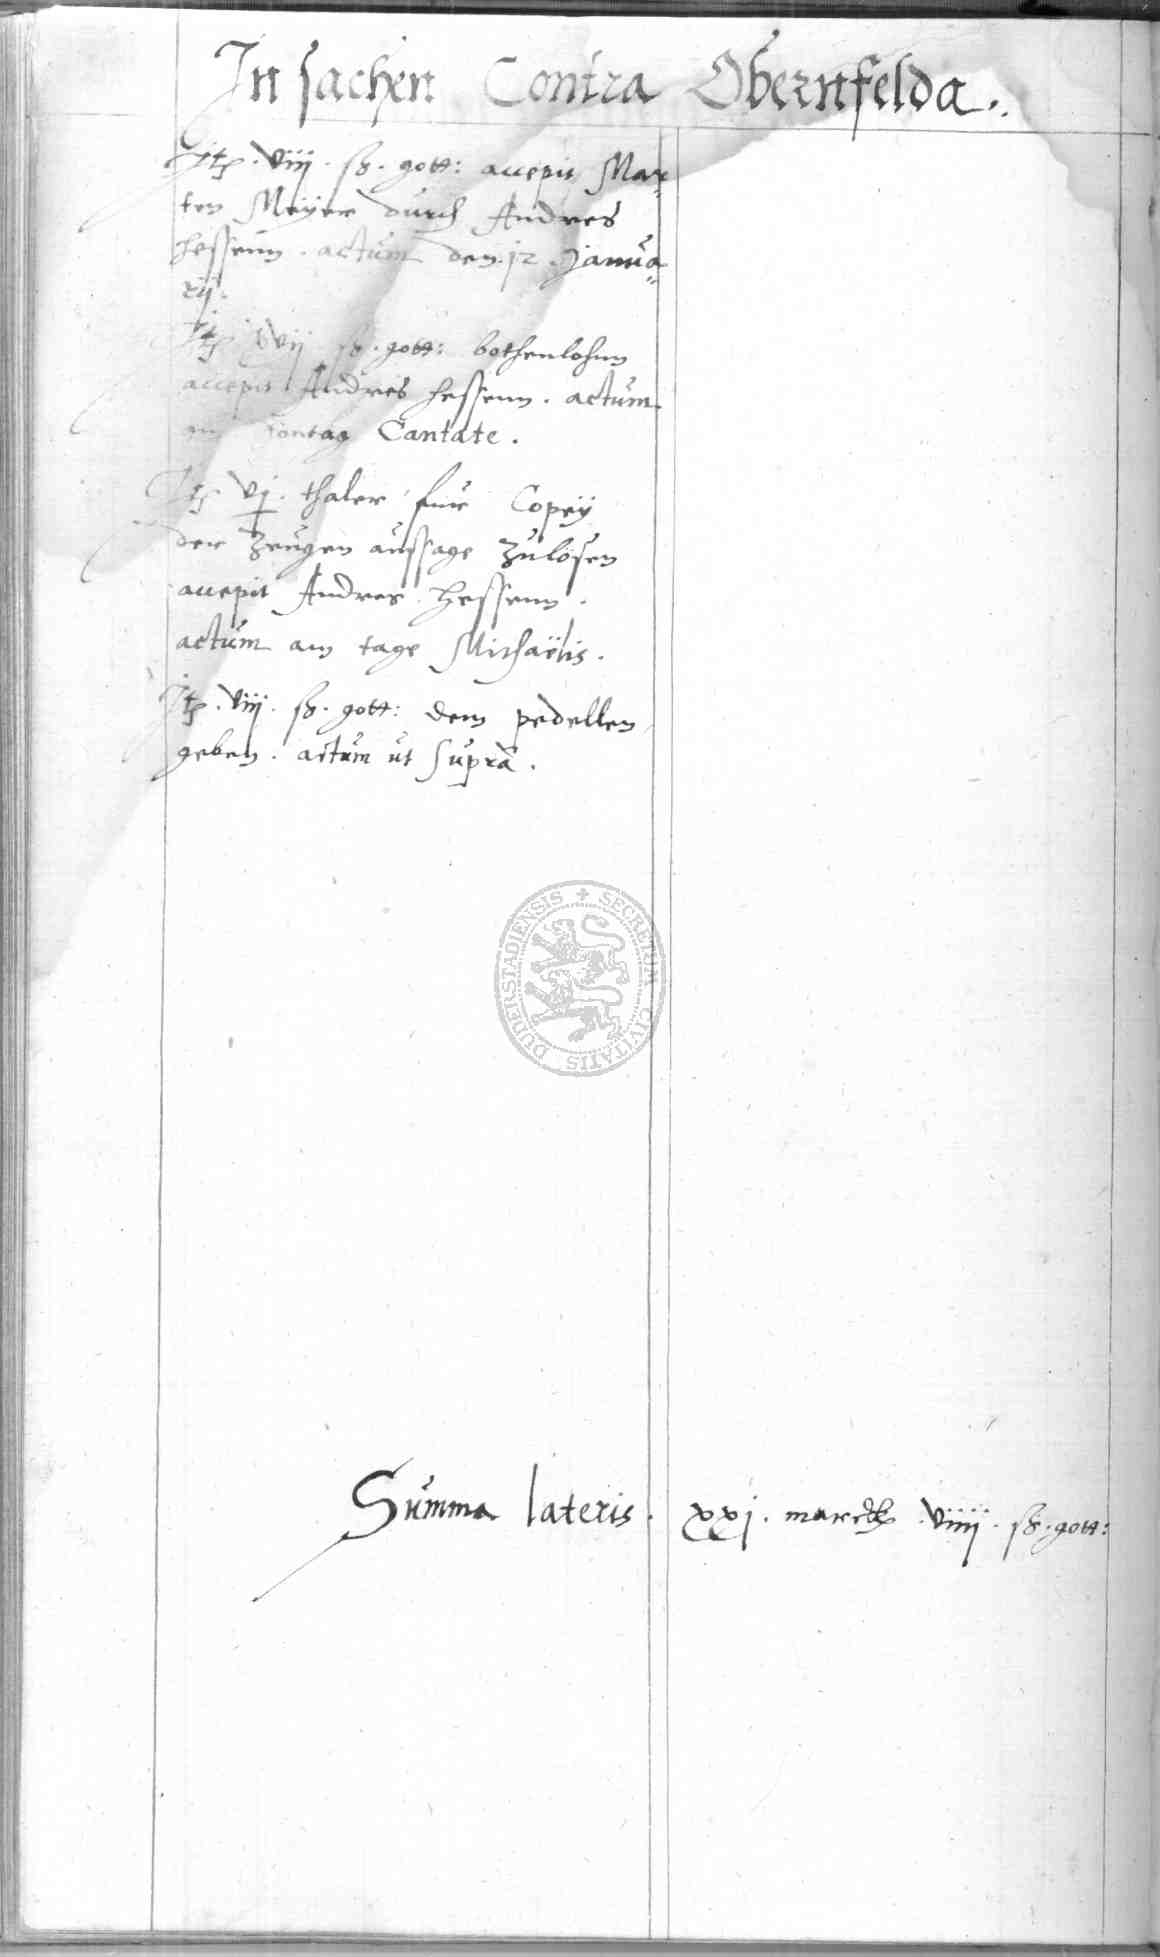 In sachen Contra Obernfelda.
Itp. viij. sz. gott: accepit Mar=
ten Meyer durch Andres
hessenn. actum den. 12. Janua=
rij.
Itp viij sz. gott: bothenlohnn
accepit Andres hessenn. actum
am sontag Cantate.
Itp vj. thaler fur Copeÿ
der zeugen aussage zulosen
accepit Andres hessenn.
actum am tage Michaëlis.
Itp. viij. sz. gott: dem pedellen
geben. actum ut supra.
SECRETUM CIVITATIS DUDERSTADIENSIS
Summa lateris. xxj. marck viiij. sz. gott: